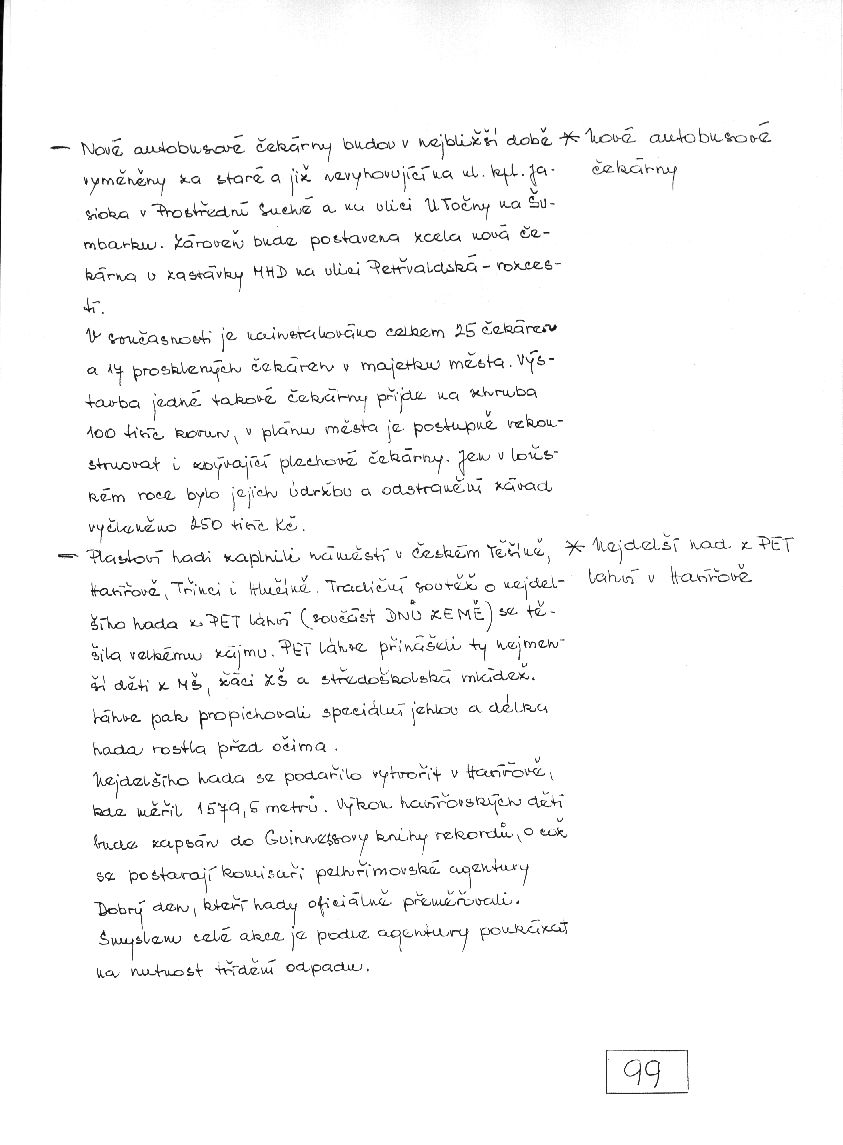 — Nové autobusové čekárny budov v nejbližší době * Nové autobusové
vyměněny za staré a již nevyhovující na ul. kpl. Ja- čekárny
sioka v Prostřední Suché a na ulici U Točny na Šu-
mbarku. Zároveň bude postavena zcela nová če-
kárna u zastávky MHD na ulici Petřvaldská - rozces-
tí.
V současnosti je nainstalováno celkem 25 čekáren
a 17 prosklených čekáren v majetku města. Výs-
tavba jedné takové čekárny přijde na zhruba
100 tisíc korun, v plánu města je postupně rekon-
struovat i zbývající plechové čekárny. Jen v loňs-
kém roce bylo jejich údržbu a odstranění závad
vyčleněno 250 tisíc Kč.
— Plastoví hadi zaplnili náměstí v českém Těšíně, * Nejdelší had z PET
Havířově, Třinci i Hlučíně. Tradiční soutěž o nejdel- lahví v Havířově
šího hada z PET lahví (součást DNŮ ZEMĚ) se tě-
šila velkému zájmu. PET láhve přinášeli ty nejmen-
ší děti z MŠ, žáci ZŠ a středoškolská mládež.
Láhve pak propichovali speciální jehlou a délka
hada rostla před očima.
Nejdelšího hada se podařilo vytvořit v Havířově,
kde měřil 1579,5 metrů. Výkon havířovských dětí
bude zapsán do Guinnessovy knihy rekordů, o což
se postarají komisaři pelhřimovské agentury
Dobrý den, kteří hady oficiálně přeměřovali.
Smyslem celé akce je podle agentury poukázat
na nutnost třídění odpadu.
99